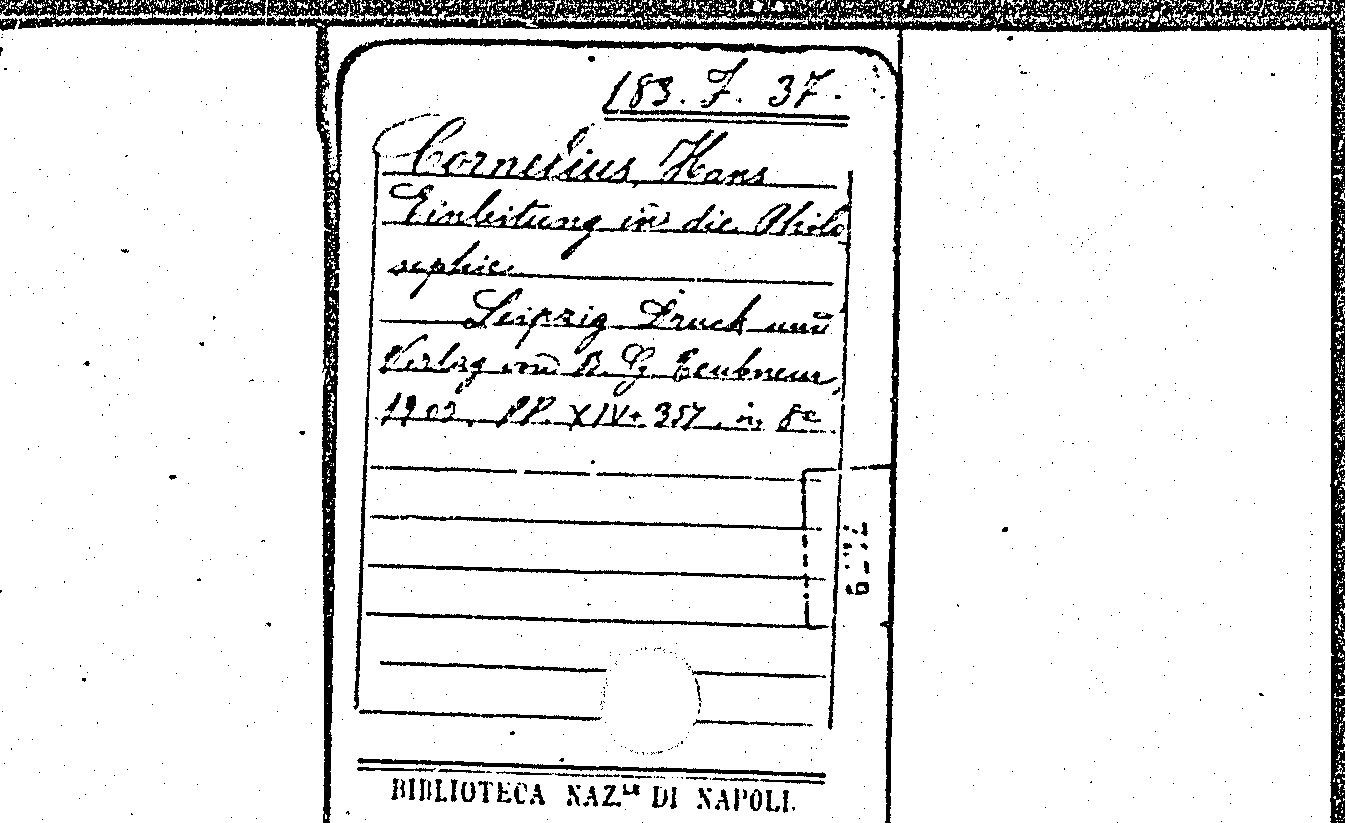 183. F. 37.
Cornelius, Hans
Einleitung in die Philo
sophie.
Leipzig Druck und
Verlag von B. G. Teubneur,
PP. XIV+ 357. in 8°
BIBLIOTECA NAZ.LE DI NAPOLI.